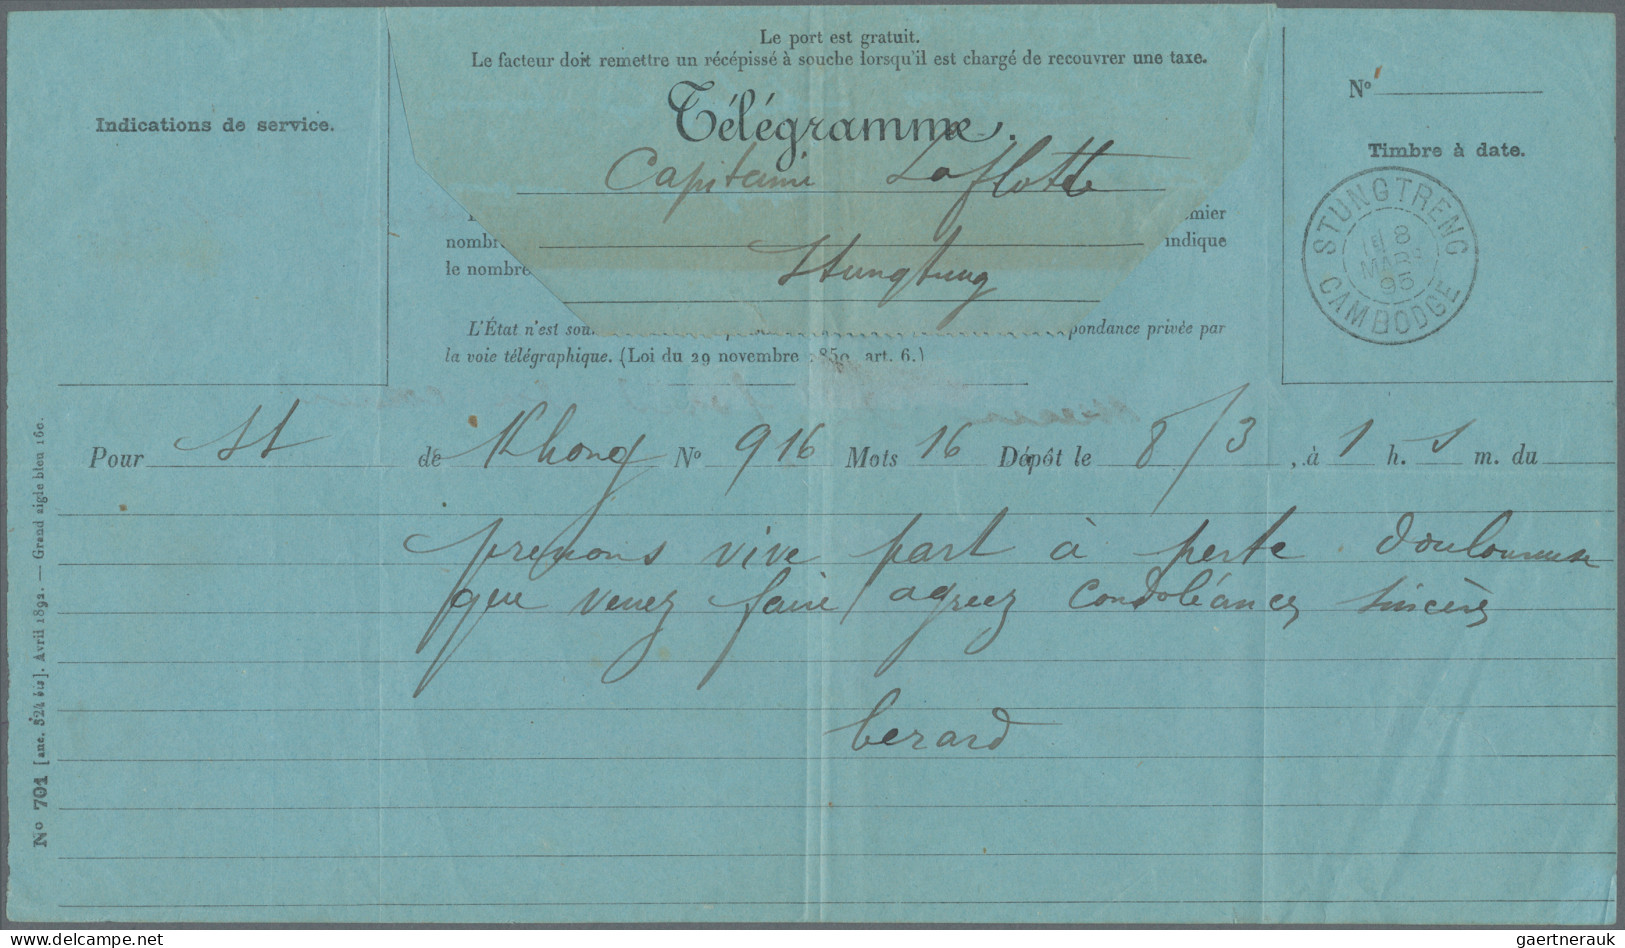 Le port est gratuit.
Le facteur doit remettre un récépissé à souche lorsqu'il est chargé de recouvrer une taxe.
Indications de service.
Télégramme.
Nº
Timbre à date.
Capitaine Laflotte
Stungtreng
mier
nombre
indique
le nombre
STUNGTRENG
8
MARS
95
CAMBODGE
L'État n'est sou
pondance privée par
la voie télégraphique. (Loi du 29 novembre 1850, art. 6.)
Pour St de Khong Nº 916 Mots 16 Dépôt le 8/3, à 1 h. s m. du
prenons vive part à perte douloureuse
que venez faire agréez condoléances sincères
berard
Nº 701 [anc. 524 bis]. Avril 1892. — Grand aigle bleu 16c.
hippostcard.com
gaertnerauk